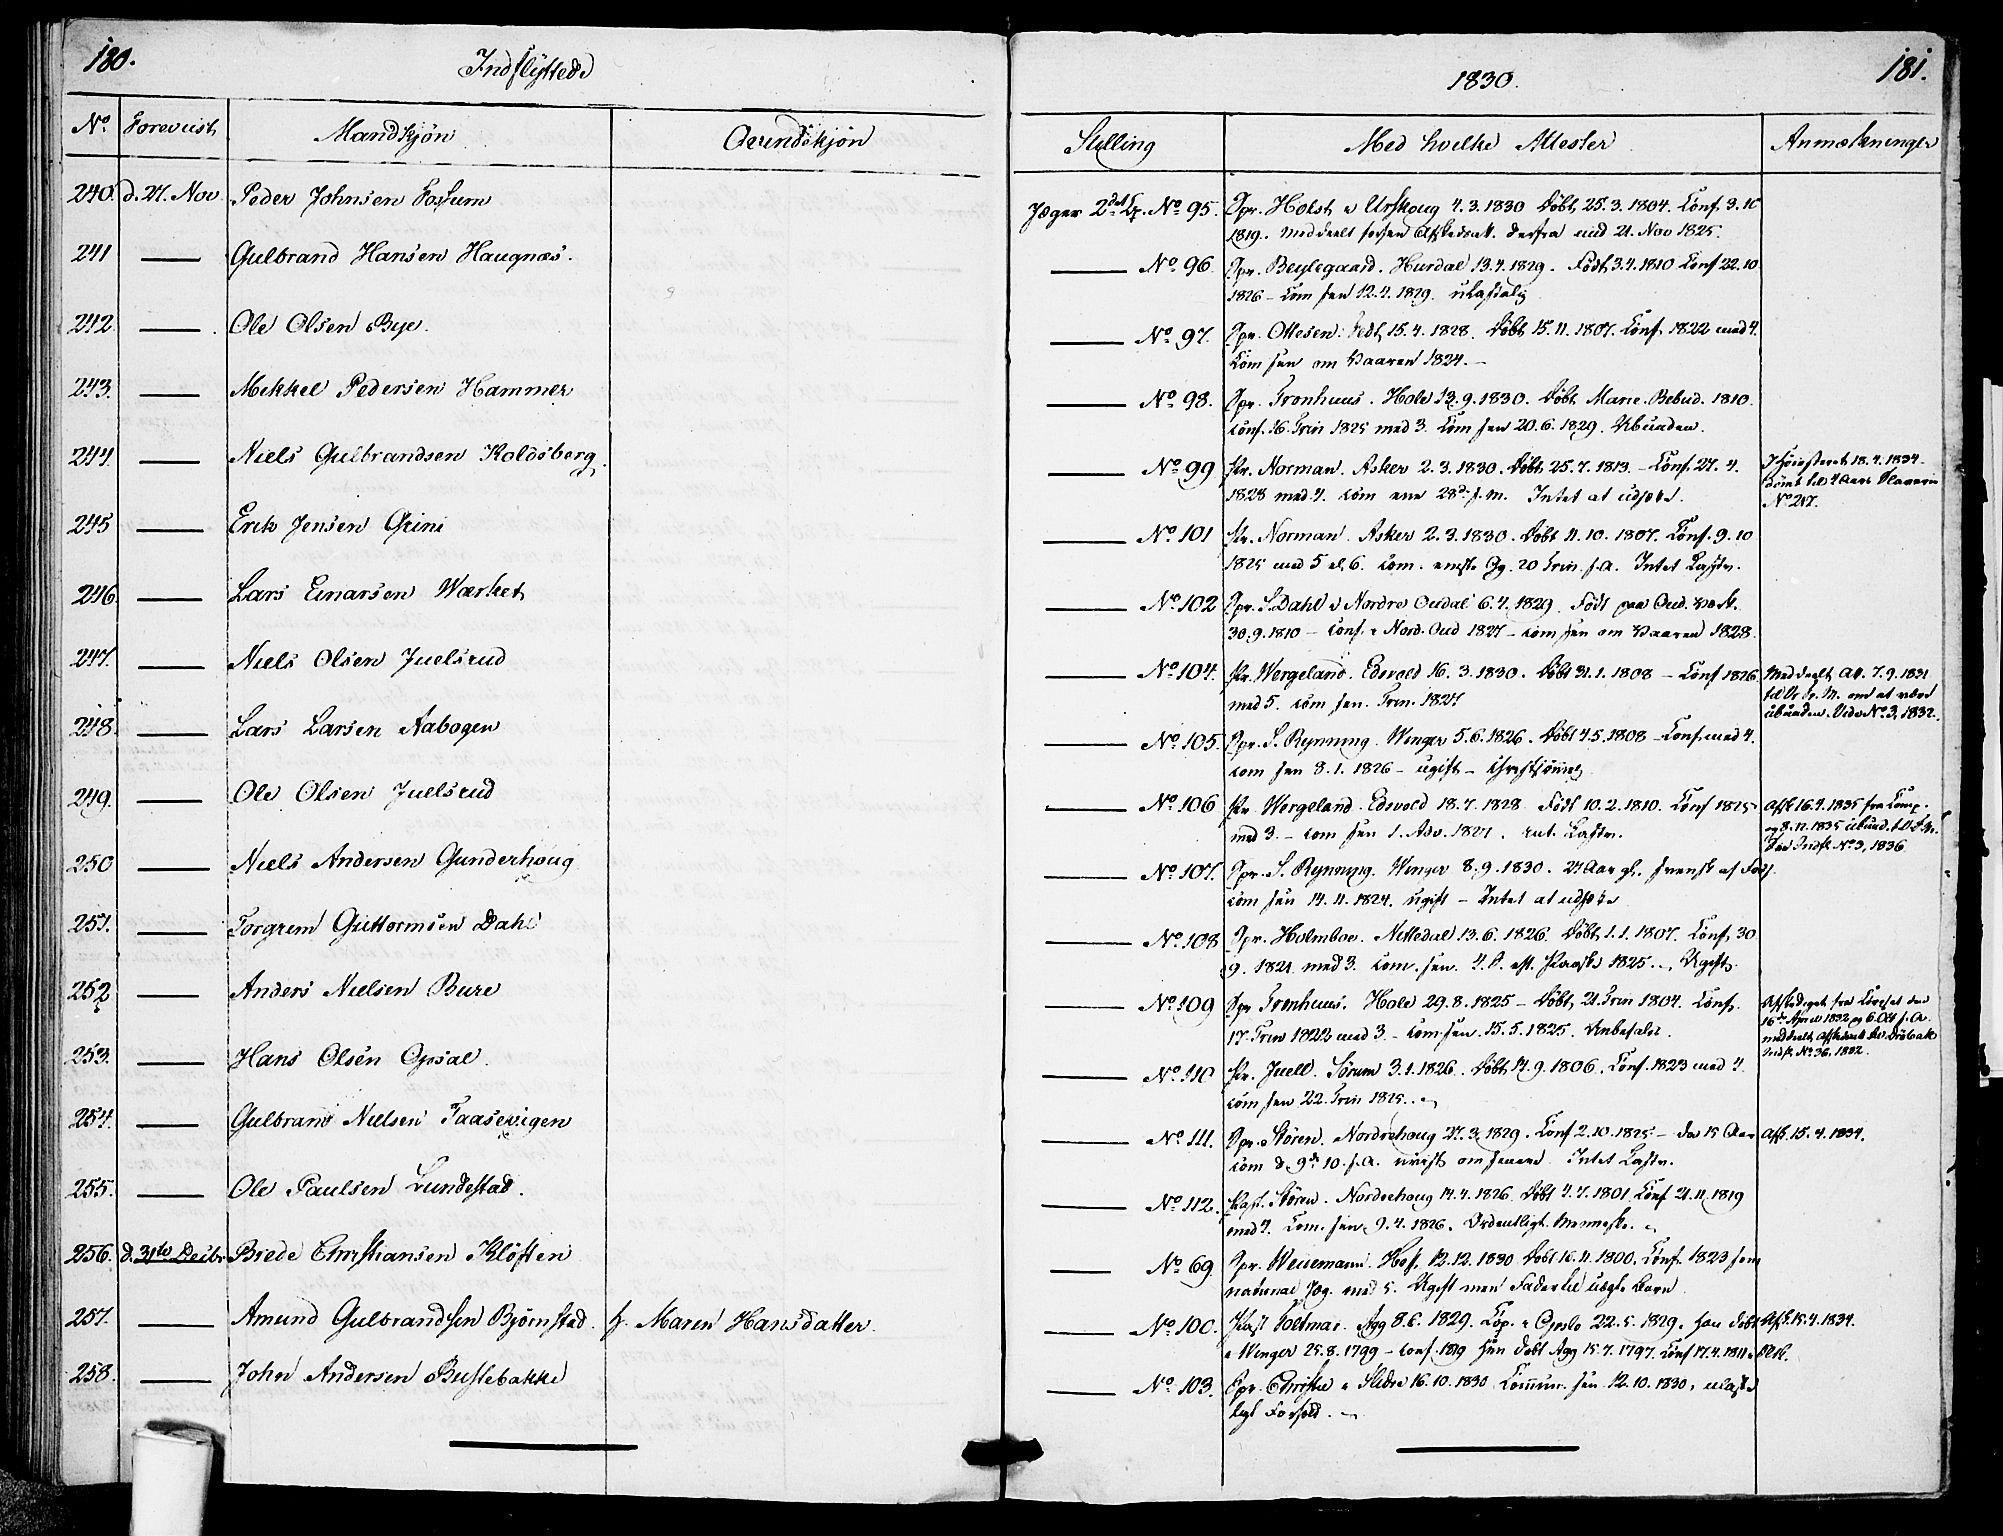 180.
Indflyttede
No Forevist Mandkjøn Qvindekjøn
240. d. 27. Nov. Peder Johnsen Fossum
241 Gulbrand Hansen Haugnæs.
242. Ole Olsen Bye.
243. Mekkel Pedersen Hammer
244. Niels Gulbrandsen Koldsberg.
245 Erik Jensen Grini
246. Lars Einarsen Wærket
247. Niels Olsen Juelsrud
248. Lars Larsen Aabogen
249. Ole Olsen Juelsrud
250 Niels Andersen Gunderhoug
251. Torgrem Guttormsen Dahl
252 Anders Nielsen Bure
253. Hans Olsen Opsal.
254. Gulbrand Nielsen Taasevigen
255. Ole Paulsen Lundestad.
256. d. 31te Decbr Brede Christiansen Kløften
257. Amund Gulbrandsen Bjørnstad. h. Maren Hansdatter.
258. John Andersen Bustebakke
181.
1830.
Stilling Med hvilke Attester Anmærkninger
Jæger No 95. Spr. Holst v Urskoug 4.3.1830 Døbt 25.3.1804. Conf. 3.10
1819. Meddeelt 21. Nov 1825.
No 96. Spr. Beylegaard. Hurdal 13.4.1829. Født 3.4.1810 Conf 22.10
1826 – Com sen 12.4.1829.
No 97. Spr. Ottesen. Fedt 15.4.1828. Døbt 15.11.1807. Conf. 1822 med 4.
Com sen om Vaaren 1824. –
No 98. Spr. Tronhuus. Hole 13.9.1830. Døbt Marie Bebud. 1810.
Conf. 16. Trin 1825 med 3. Com sen 20.6.1829. Ubunden.
No 99 Pr. Norman. Asker 2.3.1830. Døbt 25.7.1813. – Conf. 27.4.
1828 med 4. Com Intet at udsætte. I Høiesteret 18.4.1834
dømt til 4 Aars Slaverie
No 217.
No 101 Pr. Norman. Asker 2.3.1830. Døbt 11.10.1807. Conf. 9.10
1825 med 5 el. 6. Com. 20 Trin. f. A. Intet
No 102 Spr. S. Dahl v Nordre Oudal 6.4.1829. Født paa Oud.
30.9.1810 – Conf. i Nord. Oud 1827 – Com sen om Vaaren 1828.
No 104. Pr. Wergeland. Edsvold 16.3.1830. Døbt 31.1.1808 – Conf 1826
med 5. Com sen. Trin. 1827
Meddeelt Att. 7.9.1831
om at være
ubunden. Vide No 3, 1832.
No 105. Spr. S. Rynning. Winger 5.6.1826. Døbt 4.5.1808 – Conf. med 4.
Com sen 8.1.1826 – ugift –
No 106 Pr. Wergeland. Edsvold 18.7.1828 Født 10.2.1810. Conf 1825
med 3. – Com sen 1. Adv. 1827.
Afsk 16.9.1835 fra Comp.
og 8.12.1835 ubund.
No 3, 1836
No 107. Spr. S. Rynning. Winger 8.9.1830. 27 Aar gl. svensk af Føds.
Com sen 14.11.1824. ugift – Intet at udsætte
No 108 Spr. Holmboe. Nittedal 13.6.1826. Døbt 1.1.1807. Conf. 30
9.1821 med 3. Com. sen. 4. S. eft. Paaske 1825. Ugift.
No 109 Spr Tronhuus. Hole 29.8.1825 – Døbt 21 Trin 1804. Conf.
17. Trin 1822 med 3 – Com sen. 15.5.1825.
Afskediget fra Corpset den
1832 og 6. Oct f. A.
meddeelt til Drøbak
No 36. 1832.
No 110 Pr. Juell. Sørum 3.1.1826. Døbt 14.9.1806. Conf. 1823 med 4.
Com sen 22. Trin 1825.
No 111. Spr. Støren. Nordrehoug 27.3.1829. Conf 2.10.1825 – da 15 Aar
Com d. 9de 10. f. A. Intet Afsk. 15.4.1834.
No 112. Støren. Nordrehoug 14.4.1826. Døbt 4.7.1801. Conf 21.11.1819
med 4. Com. sen 9.4.1826. Ordentligt Menneske.
No 69. Spr. Weinemann. Hof. 12.12.1830 Døbt 16.11.1800. Conf. 1823 som
national Jæg. med 5. Ugift men Fader til uægte Barn.
No 100. Agg 8.6.1829. Cop. i Opslo 22.5.1829. Han døbt
i Winger 25.8.1799 – Conf. 1819 Hun døbt Agg 15.7.1797. Conf 17.4.1811
Afsk. 15.4.1834.
No 103. Spr. Christie i Slidre 16.10.1830 Commun. sen 12.10.1830,
ligt Forhold.